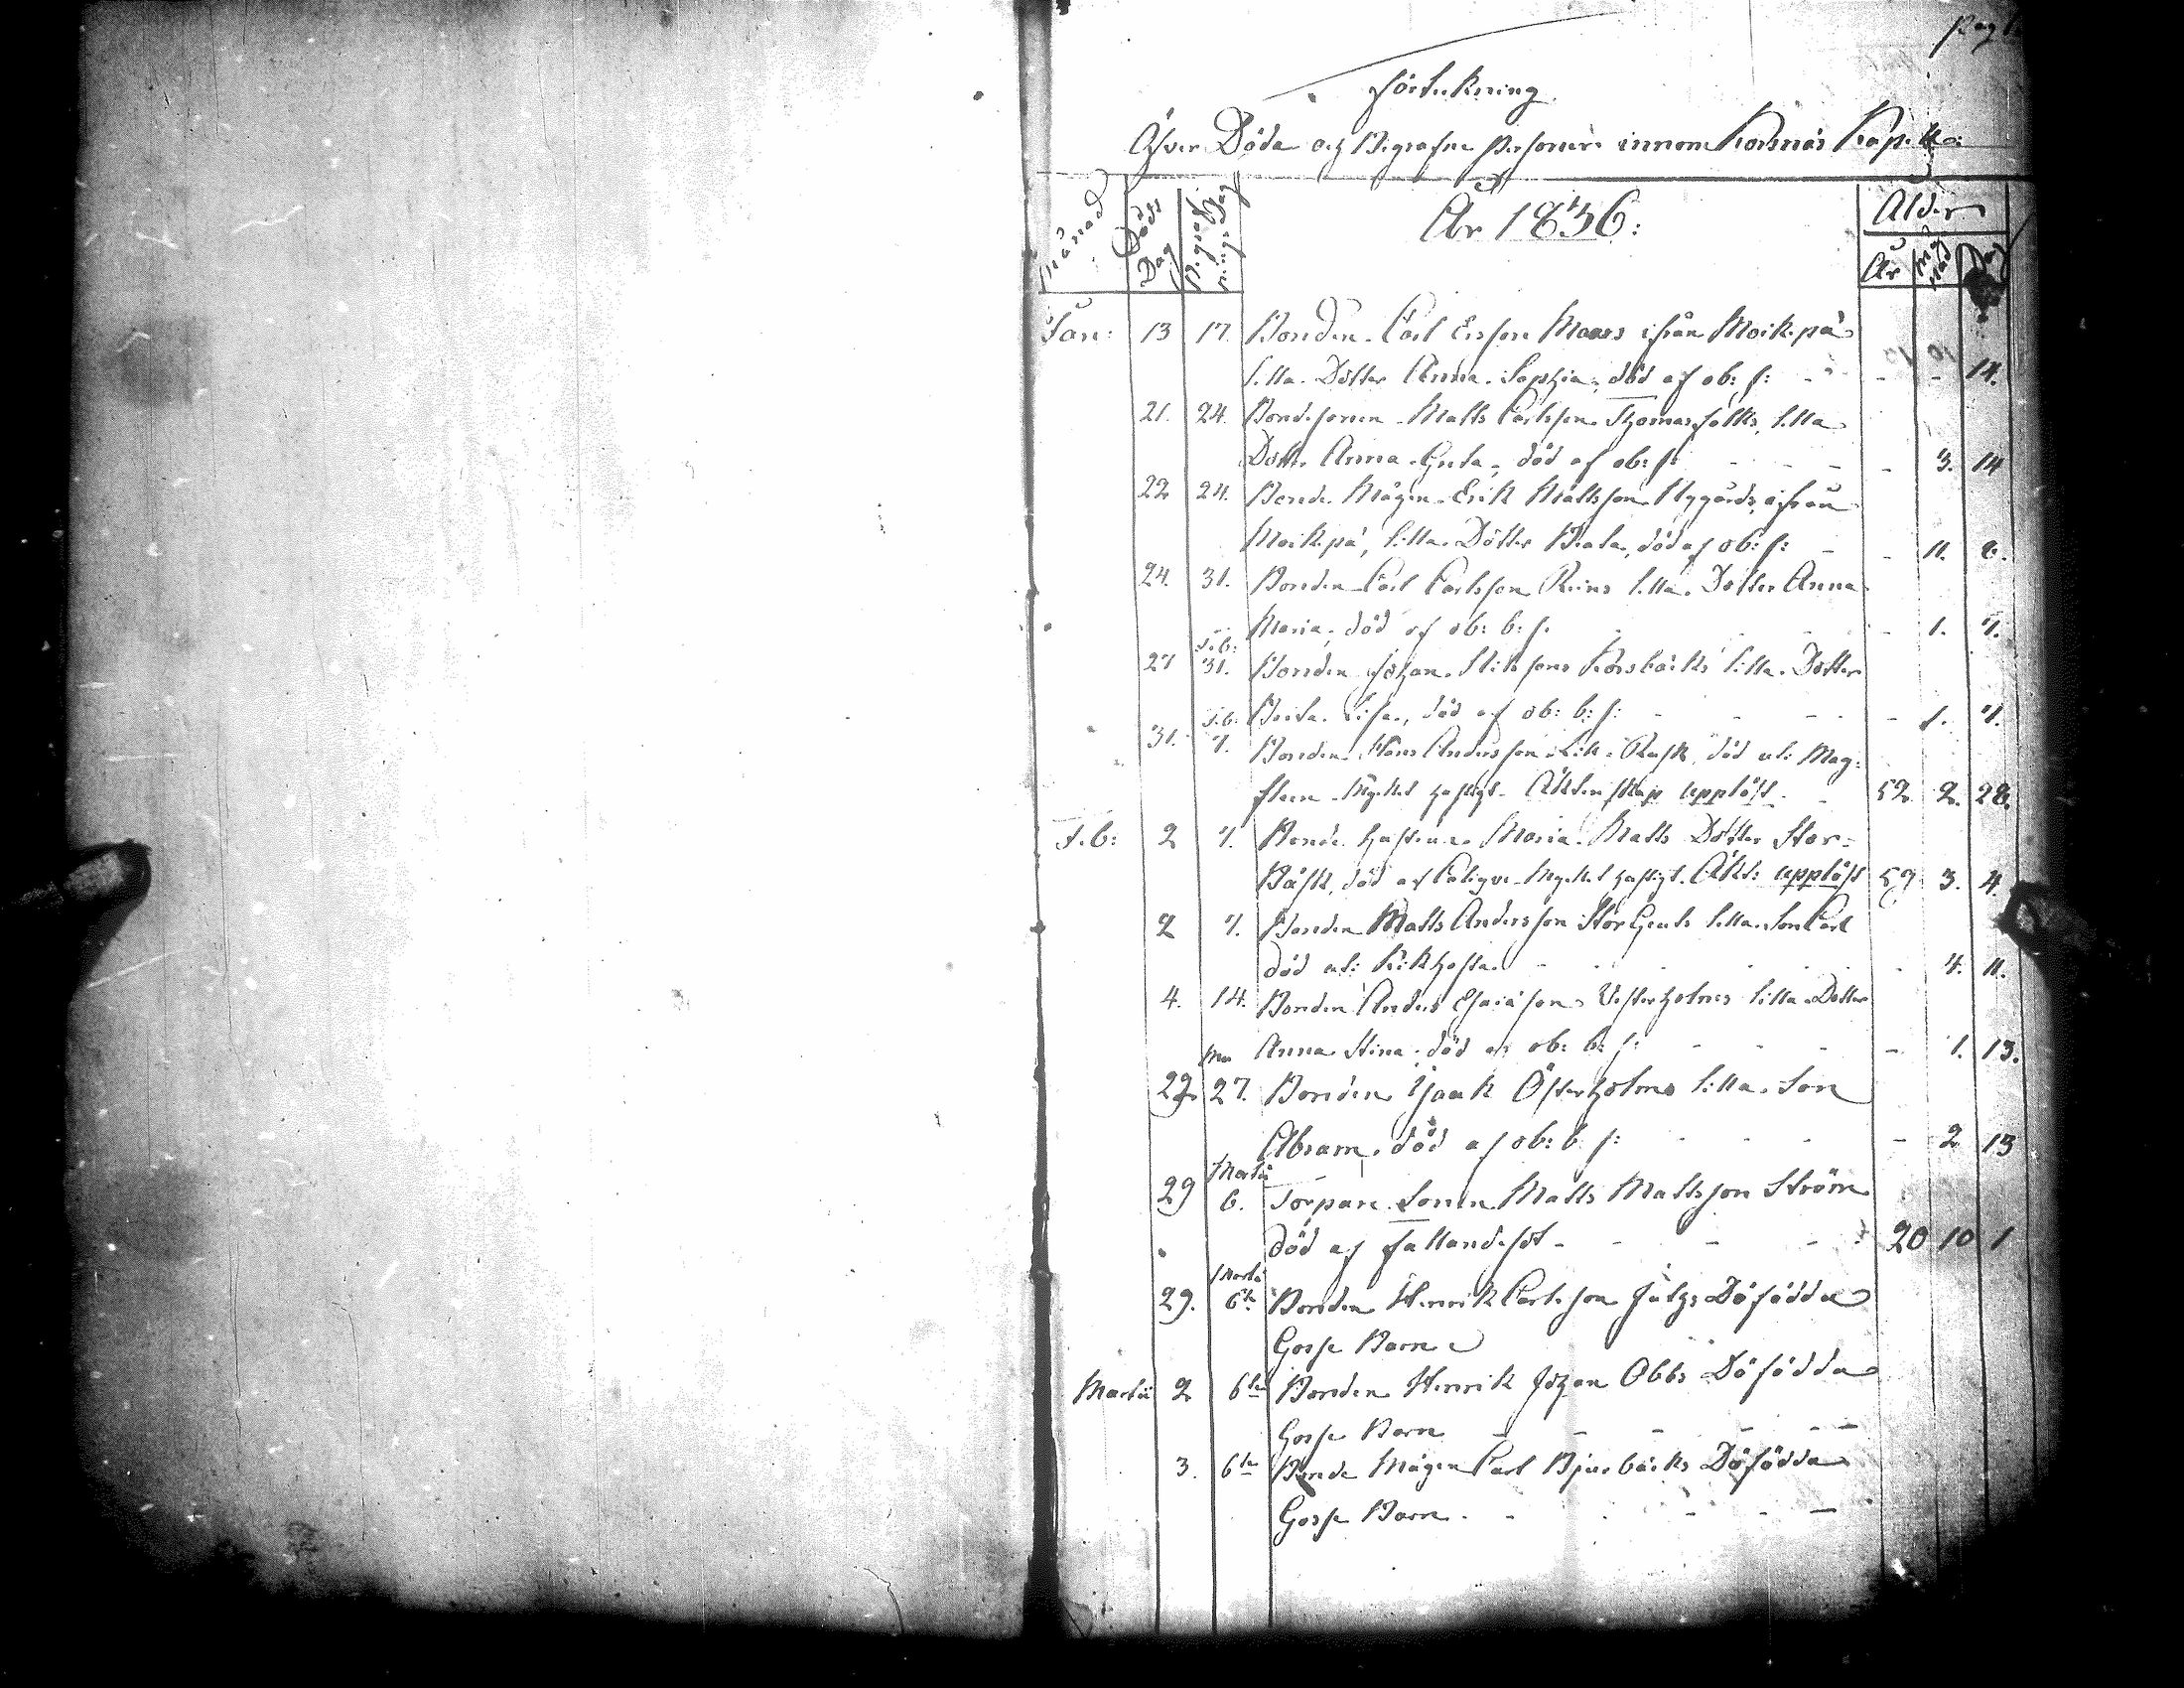 Pag
Förtekning
Öfver Döde och Begrafne personer innom Korsnäs Kapell:
Månad Döds Dag Begrafnings Dag År 1836: Ålder
År Månad Dag
Jan: 13 17. Bonden Carl Ersson Maars ifrån Moikipä
lilla Dotter Anna Sophia, död af ob: s: - - - 14.
21. 24. Bondesonen Matts Carlsson Thomasfolks, lilla
Dotter Anna Greta, död af ob: s: - - - 3. 14
22 24. Bonde Mågen Erik Mattsson Nygårds, ifrån
Moikipä, lilla Dotter Beata, död af ob: s: - - 11. 8.
24. 31. Bonden Carl Carlsson Reins lilla Dotter Anna
Maria, död af ob: b: s. - - 1. 7.
Feb:
27 31. Bonden Johan Korsbäcks lilla Dotter
Brita Lisa, död af ob: b: s: - - - 1. 7.
Feb:
31. 7. Bonden Hans Andersson Lill-Rusk, död uti Mag-
Mycket hastigt. Äktenskap upplöst. - 52 2. 28.
Feb: 2 7. Bonde hustrun Maria Matts Dotter Stor-
Båsk, död af Mycket hastigt. Äkt: upplöst 59 3. 4.
2 7. Bonden Matts Andersson Storgeuts lilla Son Carl
död uti Kikhosta - - - 4. 11.
4. 14. Bonden Anders Esaiäson Vesterholms lilla Dotter
Anna Stina, död af ob: b: s: - - - 1. 13.
Mar
22. 27. Bonden Isaak Österholms lilla Son
Abram, död af ob: b: s: - - - 2 13
Martii
29 6. Torpare Sonen Matts Mattsson Ström
död af Fallandesot - - - 20 10 1
Martii
29. 6te Bonden Henrik Carlsson Juthzs Döfödda
Gosse Barn
Martii 2 6te Bonden Henrik Johan Obbs Döfödda
Gosse Barn - - - -
3. 6te Bonde Mågen Carl Bjurbäcks Döfödda
Gosse Barn. - - - -